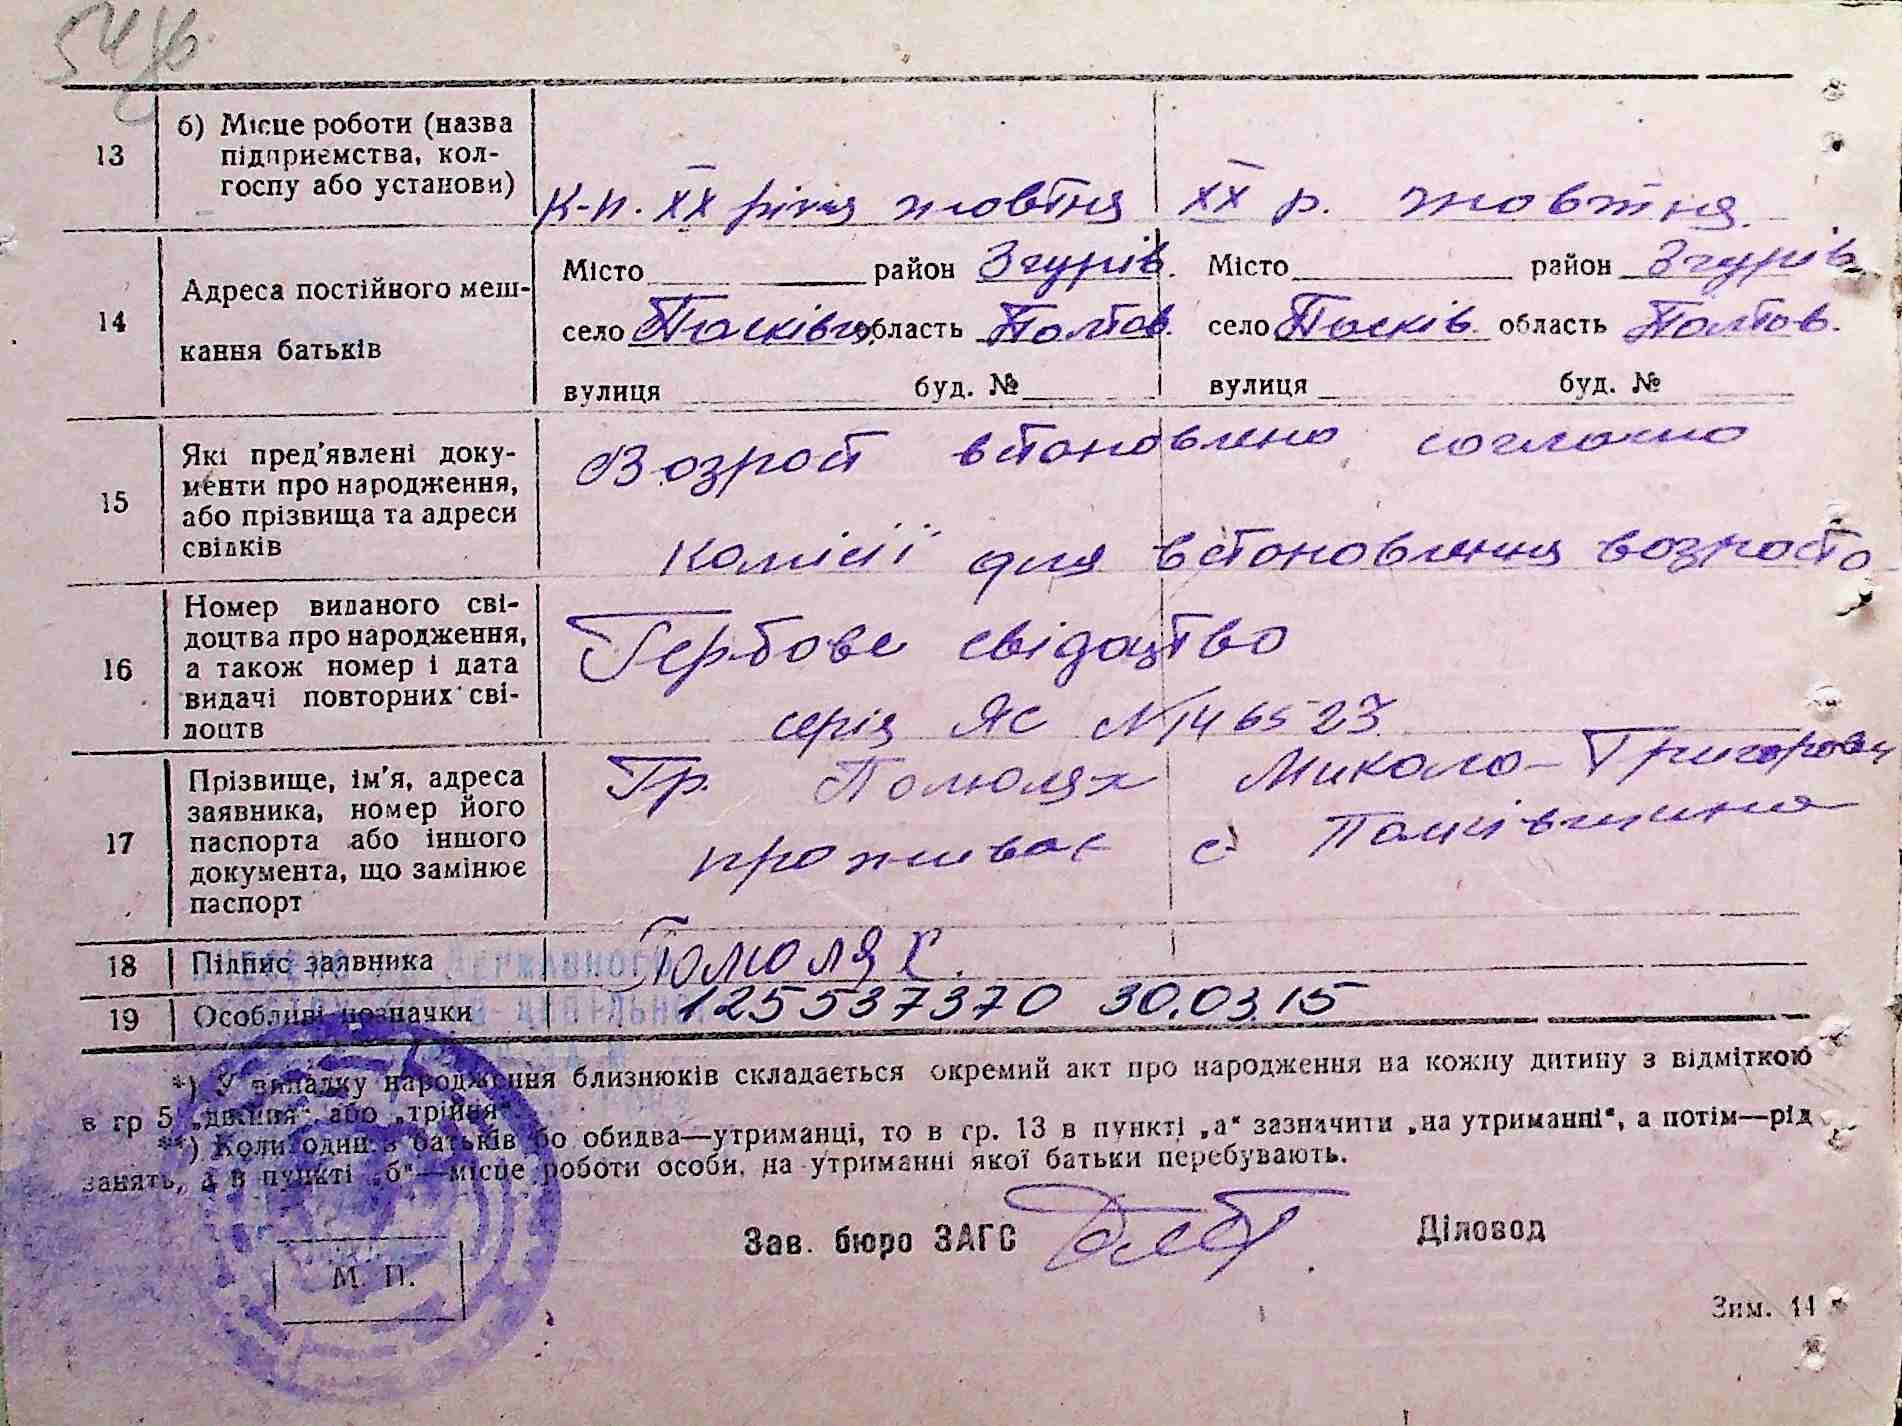 13
б) Місце роботи (назва
підприємства, кол-
госпу або установи)
К-п. ХХ річчя жовтня
ХХ р. жовтня.
14
Адреса постійного меш-
кання батьків
Місто район Згурів.
село область Полтов.
вулиця буд. №
Місто район Згурів
село Пасків. область Полтов.
вулиця буд. №
15
Які пред'явлені доку-
менти про народження,
або прізвища та адреси
свідків
Возраст встановлено согласно
комісії для встановлення возраста
16
Номер виданого сві-
доцтва про народження,
а також номер і дата
видачі повторних сві-
доцтв
Гербове свідоцтво
серія ЯС № 146523
17
Прізвище, ім'я, адреса
заявника, номер його
паспорта або іншого
документа, що замінює
паспорт
Гр. Микола Григорович
проживає с.
18
Підпис заявника
19
Особливі позначки
125537370 30.03.15
*) У випадку народження близнюків складається окремий акт про народження на кожну дитину з відміткою
в гр 5 „двійня" або „трійня".
**) Коли один з батьків бо обидва—утриманці, то в гр. 13 в пункті „а" зазначити „на утриманні", а потім—рід
занять, а в пункті „б"—місце роботи особи, на утриманні якої батьки перебувають.
Зав. бюро ЗАГС
Діловод
М. П.
Зим. 14